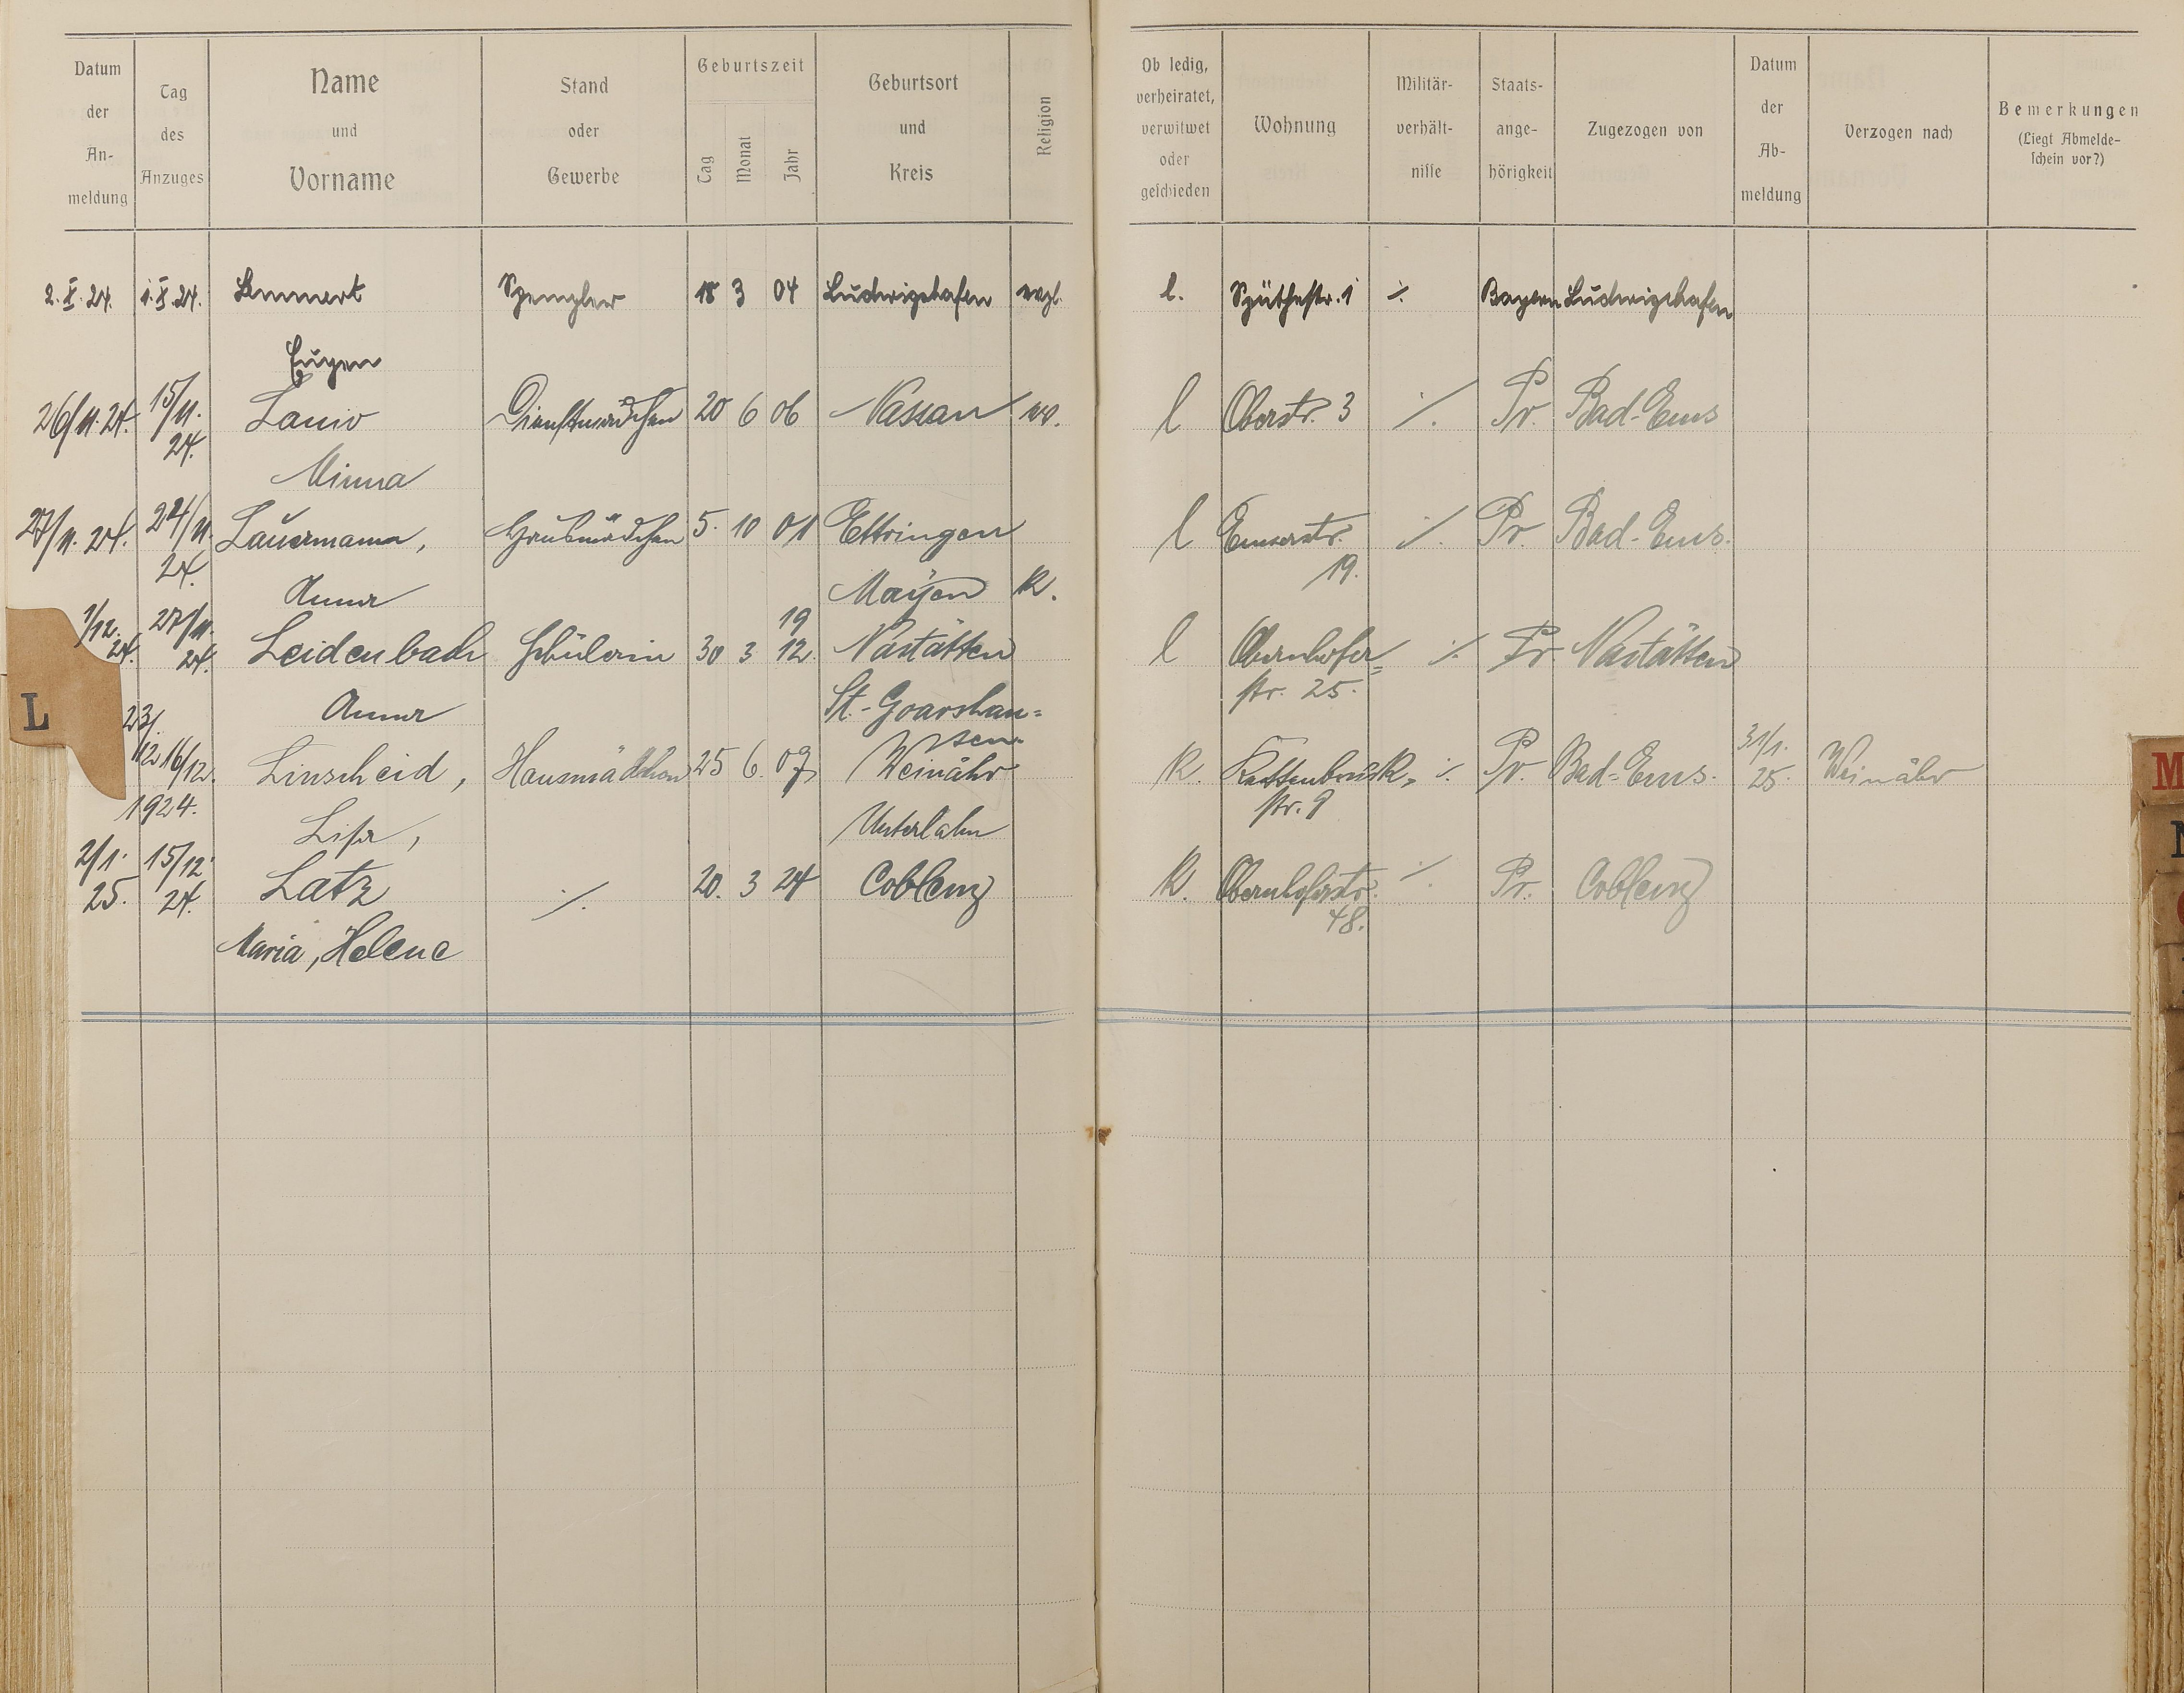 Datum der An- meldung
Tag des Anzuges
Name und Vorname
Stand oder Gewerbe
Geburtszeit
Tag Monat Jahr
Geburtsort und Kreis
Religion
Ob ledig, verheiratet, verwitwet oder geschieden
Wohnung
Militär- verhält- nisse
Staats- ange- hörigkeit
Zugezogen von
Datum der Ab- meldung
Verzogen nach
Bemerkungen (Liegt Abmelde- schein vor?)
2. X. 24. 1. X. 24. Lemmert Spengler 18 3 04 Ludwigshafen evgl. l. 1 ·/. Bayern Ludwigshafen
Eugen
26/11. 24. 15/11. 24. Dienstmädchen 20 6 06 Nassau ev. l Oberstr. 3 ·/. Pr. Bad-Ems
Minna
27/11. 24. 24/11. 24. Lauermann, Hausmädchen 5. 10 01 Ettringen l Emserstr. 19. ·/. Pr. Bad-Ems.
Anna Mayen K.
1/12. 24. 27/11. 24. Leidenbach Schülerin 30 3 19 12. Nastätten l Obernhofer= str. 25. ·/. Pr Nastätten
Anna St.-Goarshau= sen.
23/12 16/12. 1924. Linscheid, Hausmädchen 25 6. 07 Weinähr K. str. 9 ·/. Pr. Bad=Ems. 31/1. 25. Weinähr
Lisa, Unterlahn
2/1. 25. 15/12. 24. Latz ·/. 20. 3 24 Coblenz K. Obernhoferstr. 48. ·/. Pr. Coblenz
Maria, Helene
L
M